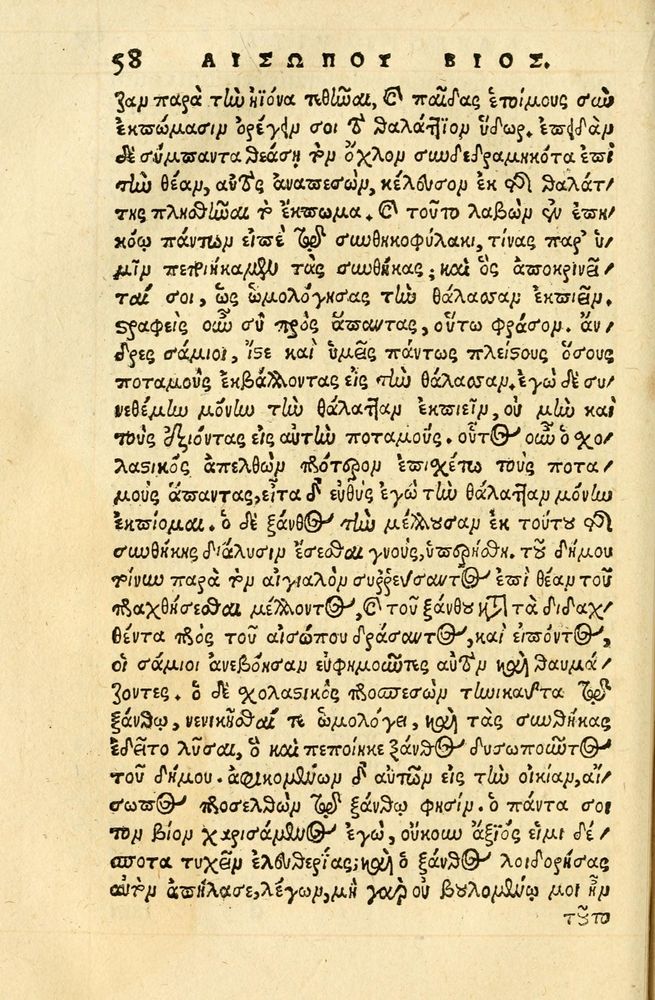 58 ΑΙΣΩΠΟΥ ΒΙΟΣ.
ζαν παρὰ τὴν ἠϊόνα τεθῆναι, καὶ παῖδας ἑτοίμους σὺν
ἐκπώμασιν ὀρέγειν σοι τὸ θαλάττιον ὕδωρ. ἐπειδὰν
δὲ σύμπαντα θεάσῃ τὸν ὄχλον συνδεδραμηκότα ἐπὶ
τὴν θέαν, αὐτὸς ἀναπεσὼν, κέλευσον ἐκ τῆς θαλάτ/
της πλησθῆναι τὸ ἔκπωμα. καὶ τοῦτο λαβὼν ἐν ἐπη/
κόῳ πάντων εἰπὲ τῷ συνθηκοφύλακι, τίνας παρ' ὑ/
μῖν πεποίημαι τὰς συνθήκας; καὶ ὃς ἀποκρινεῖ/
ταί σοι, ὡς ὡμολόγησας τὴν θάλασσαν ἐκπιεῖν.
στραφεὶς οὖν σὺ πρὸς ἅπαντας, οὕτω φράσον. ἄν/
δρες σάμιοι, ἴστε καὶ ὑμεῖς πάντως πλείστους ὅσους
ποταμοὺς ἐκβάλλοντας εἰς τὴν θάλασσαν. ἐγὼ δὲ συ/
νεθέμην μόνην τὴν θάλατταν ἐκπιεῖν, οὐ μὴν καὶ
τοὺς ἐξιόντας εἰς αὐτὴν ποταμούς. οὗτος οὖν ὁ σχο/
λαστικὸς ἀπελθὼν πρότερον ἐπισχέτω τοὺς ποτα/
μοὺς ἅπαντας, εἶτα δ' εὐθὺς ἐγὼ τὴν θάλατταν μόνην
ἐκπίομαι. ὁ δὲ ξάνθος τὴν μέλλουσαν ἐκ τούτου τῆς
συνθήκης διάλυσιν ἔσεσθαι γνοὺς, ὑπερήσθη. τοῦ δήμου
τοίνυν παρὰ τὸν αἰγιαλὸν συῤῥεύσαντος ἐπὶ θέαν τοῦ
πραχθήσεσθαι μέλλοντος, καὶ τοῦ ξάνθου κατὰ τὰ διδαχ/
θέντα πρὸς τοῦ αἰσώπου δράσαντος, καὶ εἰπόντος,
οἱ σάμιοι ἀνεβόησαν εὐφημοῦντες αὐτὸν καὶ θαυμά/
ζοντες. ὁ δὲ σχολαστικὸς προσπεσὼν τηνικαῦτα τῷ
ξάνθῳ, νενικῆσθαί τε ὡμολόγει, καὶ τὰς συνθήκας
ἐδεῖτο λῦσαι, ὃ καὶ πεποίηκε ξάνθος δυσωποῦντος
τοῦ δήμου. ἀφικομένων δ' αὐτῶν εἰς τὴν οἰκίαν, αἴ/
σωπος προσελθὼν τῷ ξάνθῳ φησίν. ὁ πάντα σοι
τὸν βίον χαρισάμενος ἐγὼ, οὔκουν ἄξιός εἰμι δέ/
σποτα τυχεῖν ἐλευθερίας; καὶ ὁ ξάνθος λοιδορήσας
αὐτὸν ἀπήλασε, λέγων, μὴ γὰρ οὐ βουλομένῳ μοι ἦν
τοῦτο